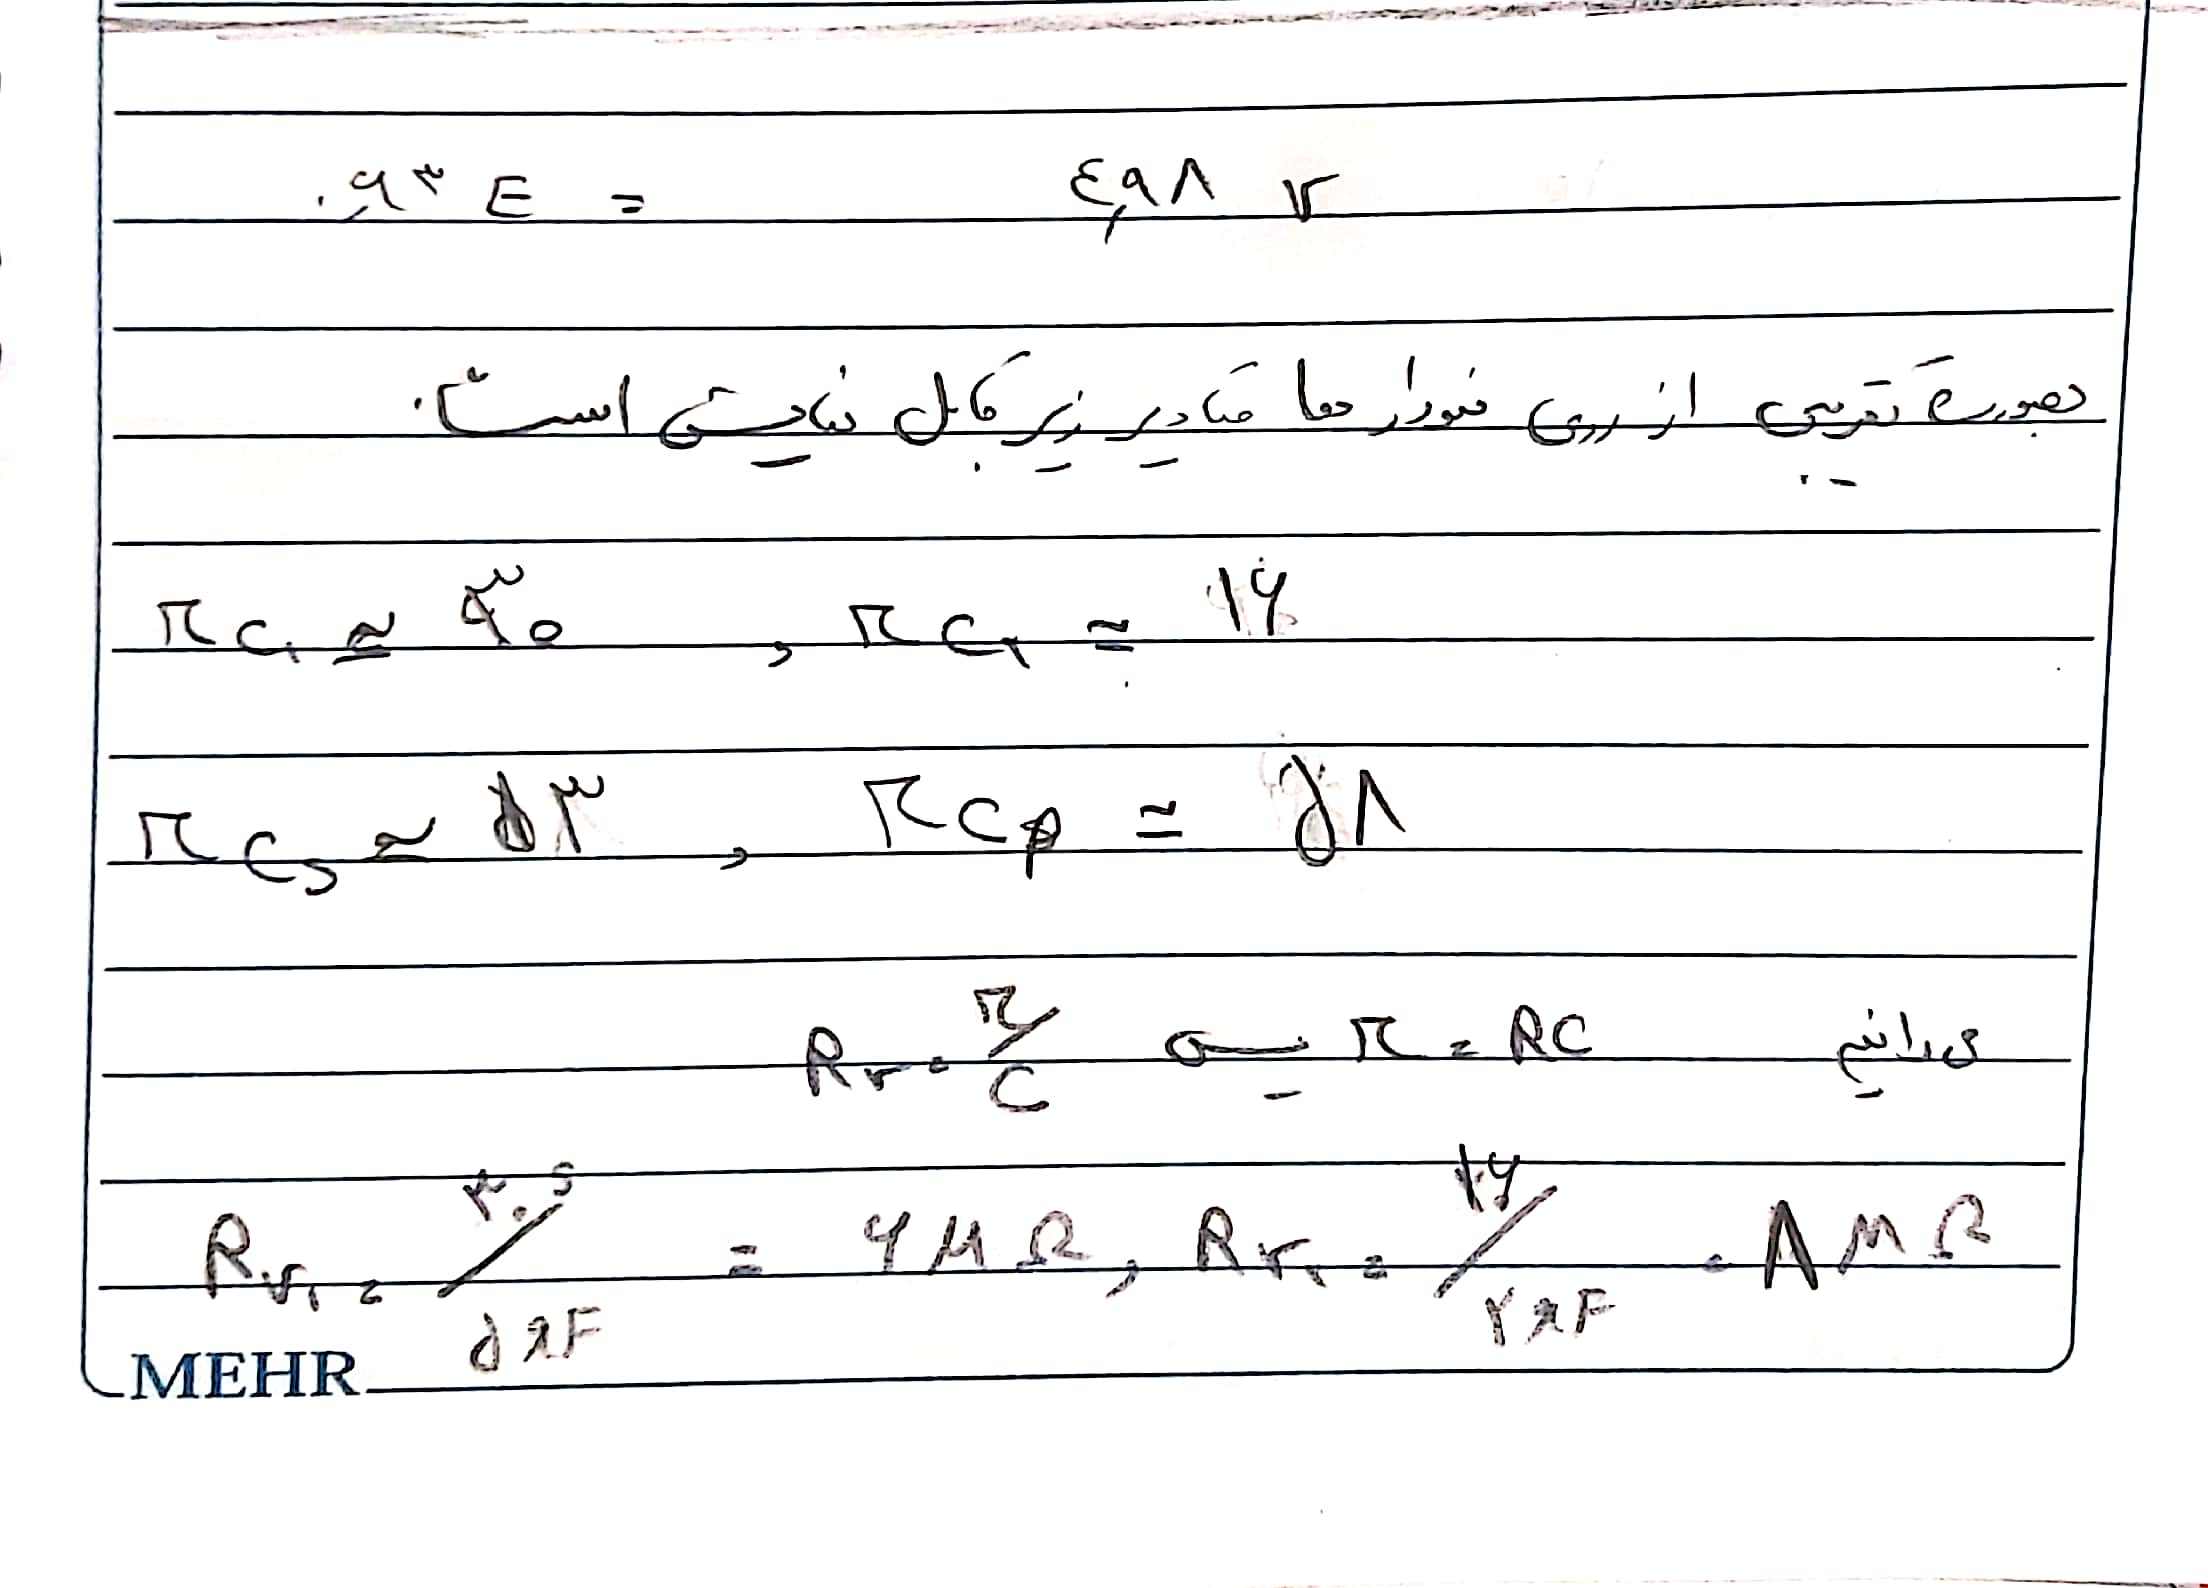 ۰,۶۳ E = ۴,۹۸ v
بصورت تقریبی از روی نمودارها مقادیر زیر قابل نمایش است.
τc₁ ≈ ۳۰ , τc₂ ≈ ۱۶
τcs ≈ ۵۳ , τcp ≈ ۵۸
می‌دانیم τ = RC پس Rv = τ/C
Rv₁ = ۳۰s/۵μF = ۶MΩ , Rv₂ = ۱۶/۲μF = ۸MΩ
MEHR